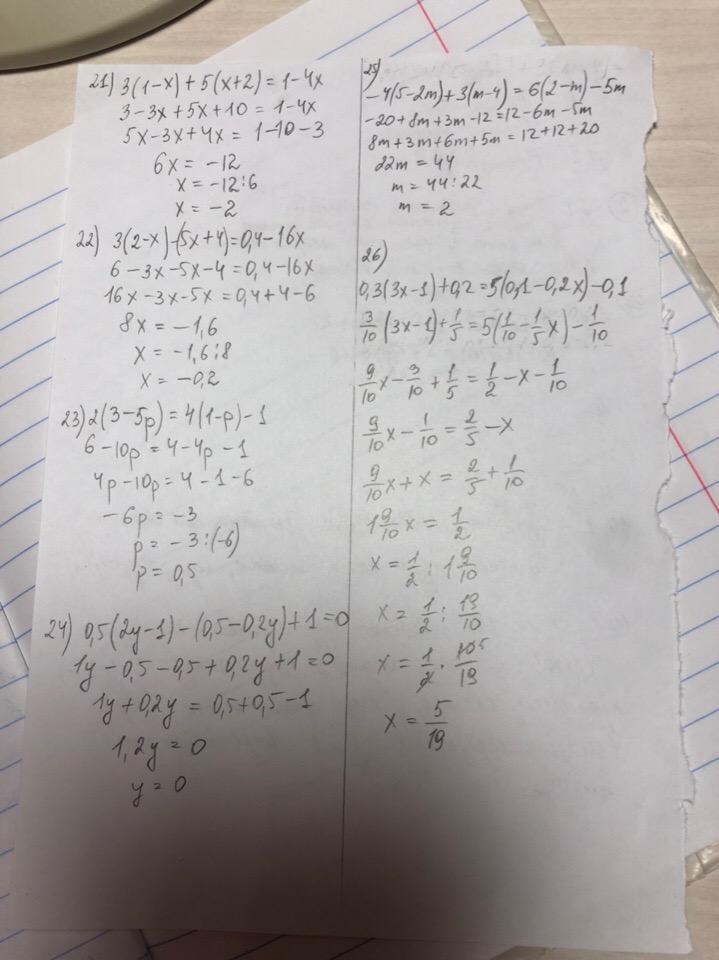 21) 3(1-x) + 5(x+2) = 1-4x
3-3x+5x+10 = 1-4x
5x-3x+4x = 1-10-3
6x = -12
x = -12:6
x = -2
22) 3(2-x)-(5x+4)=0,4-16x
6-3x-5x-4=0,4-16x
16x-3x-5x=0,4+4-6
8x = -1,6
x = -1,6:8
x = -0,2
23) 2(3-5p) = 4(1-p)-1
6-10p = 4-4p-1
4p-10p = 4-1-6
-6p = -3
p = -3:(-6)
p = 0,5
24) 0,5(2y-1)-(0,5-0,2y)+1=0
1y-0,5-0,5+0,2y+1=0
1y+0,2y = 0,5+0,5-1
1,2y = 0
y = 0
25)
-4(5-2m)+3(m-4) = 6(2-m)-5m
-20+8m+3m-12=12-6m-5m
8m+3m+6m+5m=12+12+20
22m = 44
m = 44:22
m = 2
26)
0,3(3x-1)+0,2=5(0,1-0,2x)-0,1
3/10(3x-1)+1/5=5(1/10-1/5x)-1/10
9/10x-3/10+1/5=1/2-x-1/10
9/10x-1/10=2/5-x
9/10x+x=2/5+1/10
1 9/10x=1/2
x=1/2:1 9/10
x=1/2:19/10
x=1/2·10 5/19
x=5/19